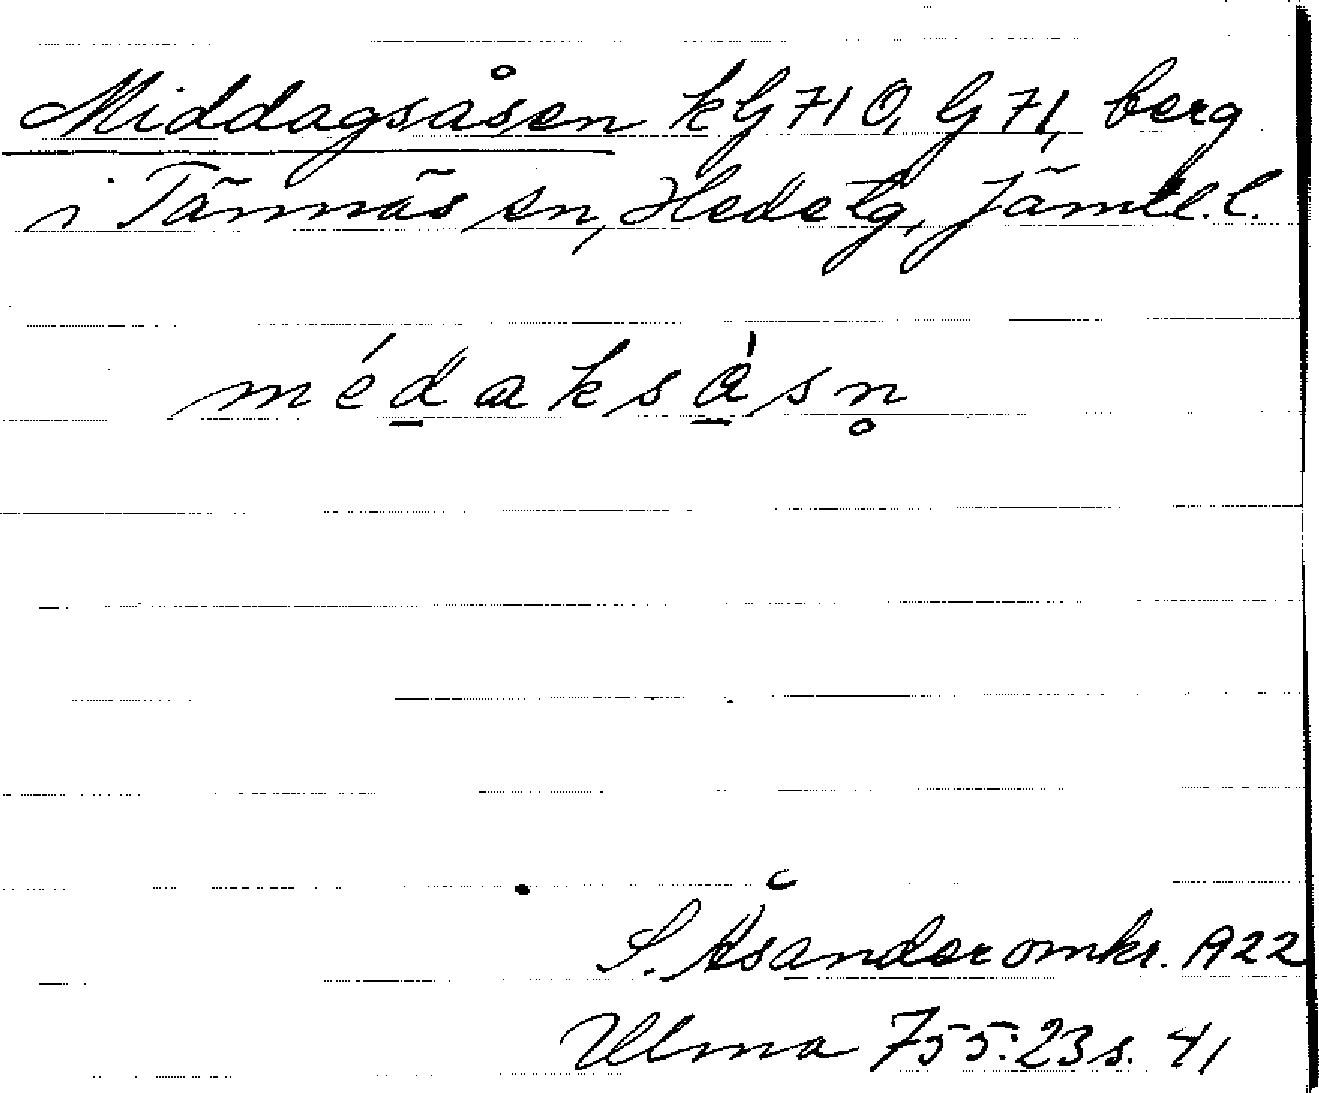 Middagsåsen kG710, G71, berg
i Tännäs sn, Hede tg, Jämtl. l.
médaksåsn̥
S. Åsander omkr. 1922
Ulma 755:23 s. 41